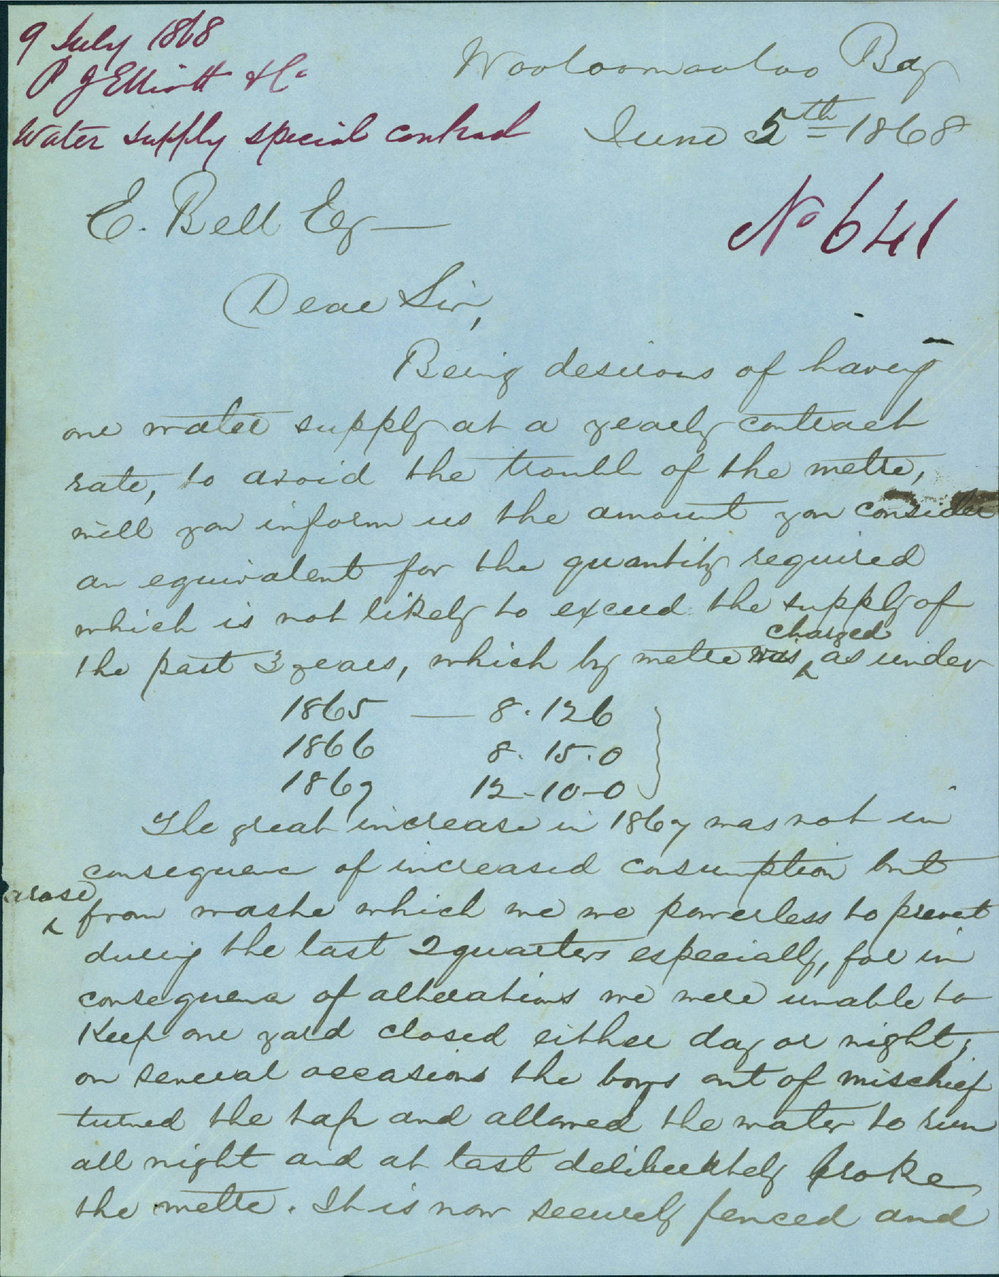 9 July 1868
P J Elliott & Co
Water supply special contract
Wooloomooloo Bay
June 5th = 1868
No 641
E. Bell Esq —
Dear Sir,
Being desirous of having
our water supply at a yearly contract
rate, to avoid the trouble of the metre,
will you inform us the amount you consider
an equivalent for the quantity required
which is not likely to exceed the supply of
the past 3 years, which by metre was charged as under
1865 — 8.12 6
1866 8. 15. 0
1867 12-10-0
The great increase in 1867 was not in
consequence of increased consumption but
arose from waste which we were powerless to prevent
during the last 2 quarters especially, for in
consequence of alterations we were unable to
Keep our yard closed either day or night;
on several occasions the boys out of mischief
turned the tap and allowed the water to run
all night and at last deliberately broke
the metre. It is now securely fenced and